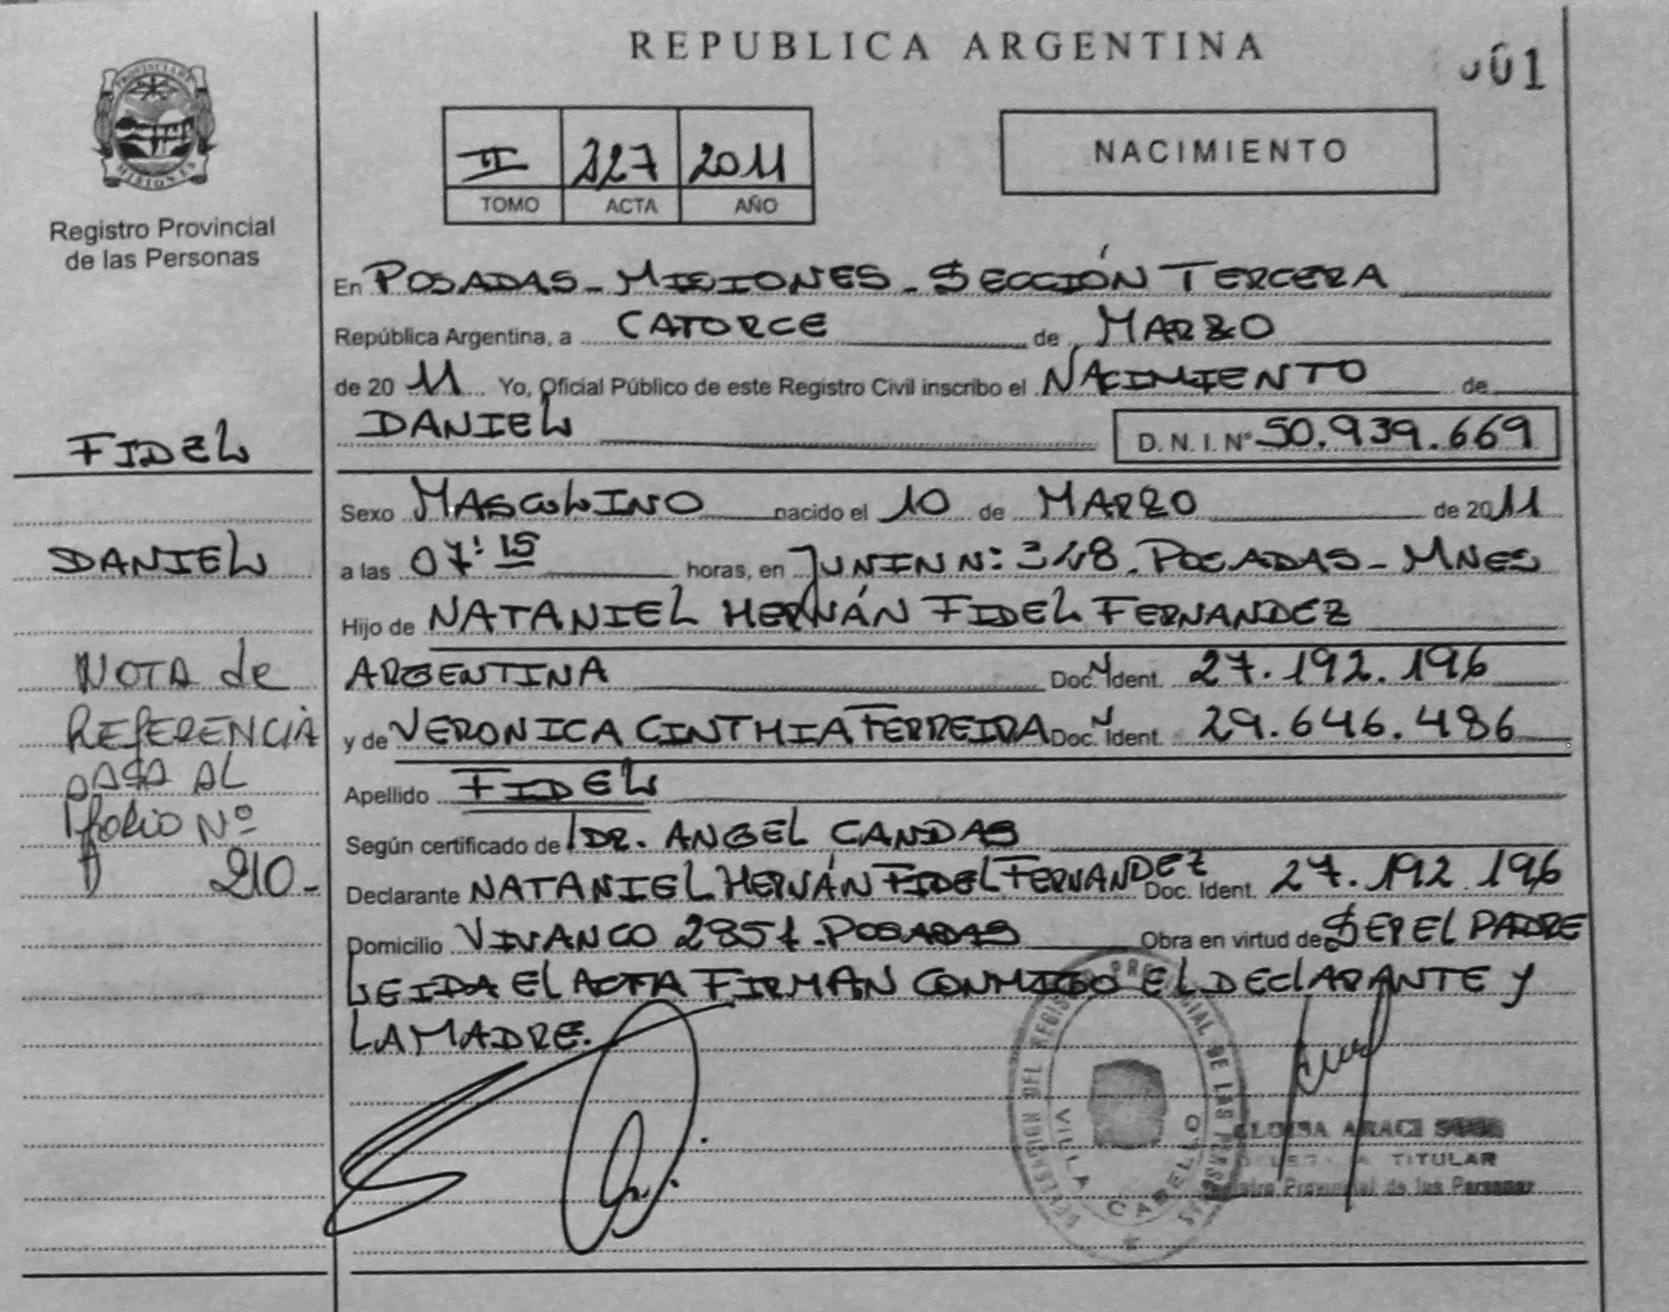 REPUBLICA ARGENTINA
001
PROVINCIA DE
MISIONES
Registro Provincial
de las Personas
II 227 2011
TOMO ACTA AÑO
NACIMIENTO
En POSADAS - MISIONES - SECCIÓN TERCERA
República Argentina, a CATORCE de MARZO
de 20 11 Yo, Oficial Público de este Registro Civil inscribo el NACIMIENTO de
DANIEL D. N. I. Nº 50.939.669
Sexo MASCULINO nacido el 10 de MARZO de 2011
a las 07:15 horas, en JUNIN N: 348. POSADAS - MNES
Hijo de NATANIEL HERNÁN FIDEL FERNANDEZ
ARGENTINA Doc. Ident. 27.192.196
y de VERONICA CINTHIA FERREIRA Doc. Ident. 29.646.486
Apellido FIDEL
Según certificado de DR. ANGEL CANDAS
Declarante NATANIEL HERNÁN FIDEL FERNANDEZ Doc. Ident. 27.192.196
Domicilio VIVANCO 2851. POSADAS Obra en virtud de SER EL PADRE
LEIDA El ACTA FIRMAN CONMIGO EL DEClARANTE y
LA MADRE.
FIDEL
DANIEL
NOTA de
REFERENCIA
PASA AL
folio Nº
210-
VILLA CABELLO
TITULAR
Registro Provincial de las Personas